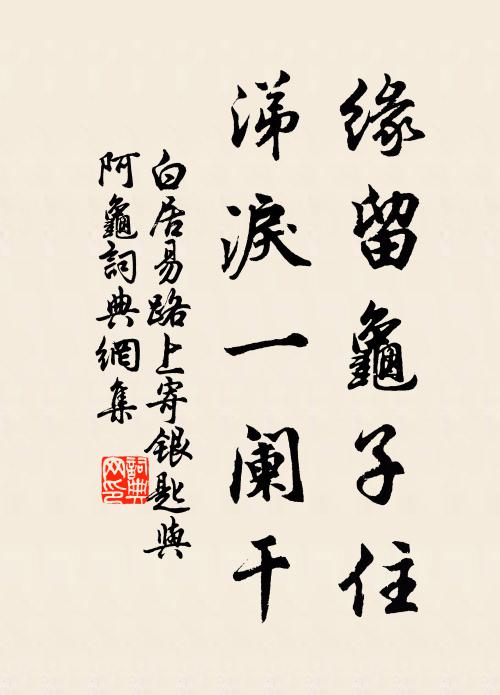 缘留龜子住
涕淚一阑干
白居易路上寄银匙與
阿龜詞典網集
詞典网印